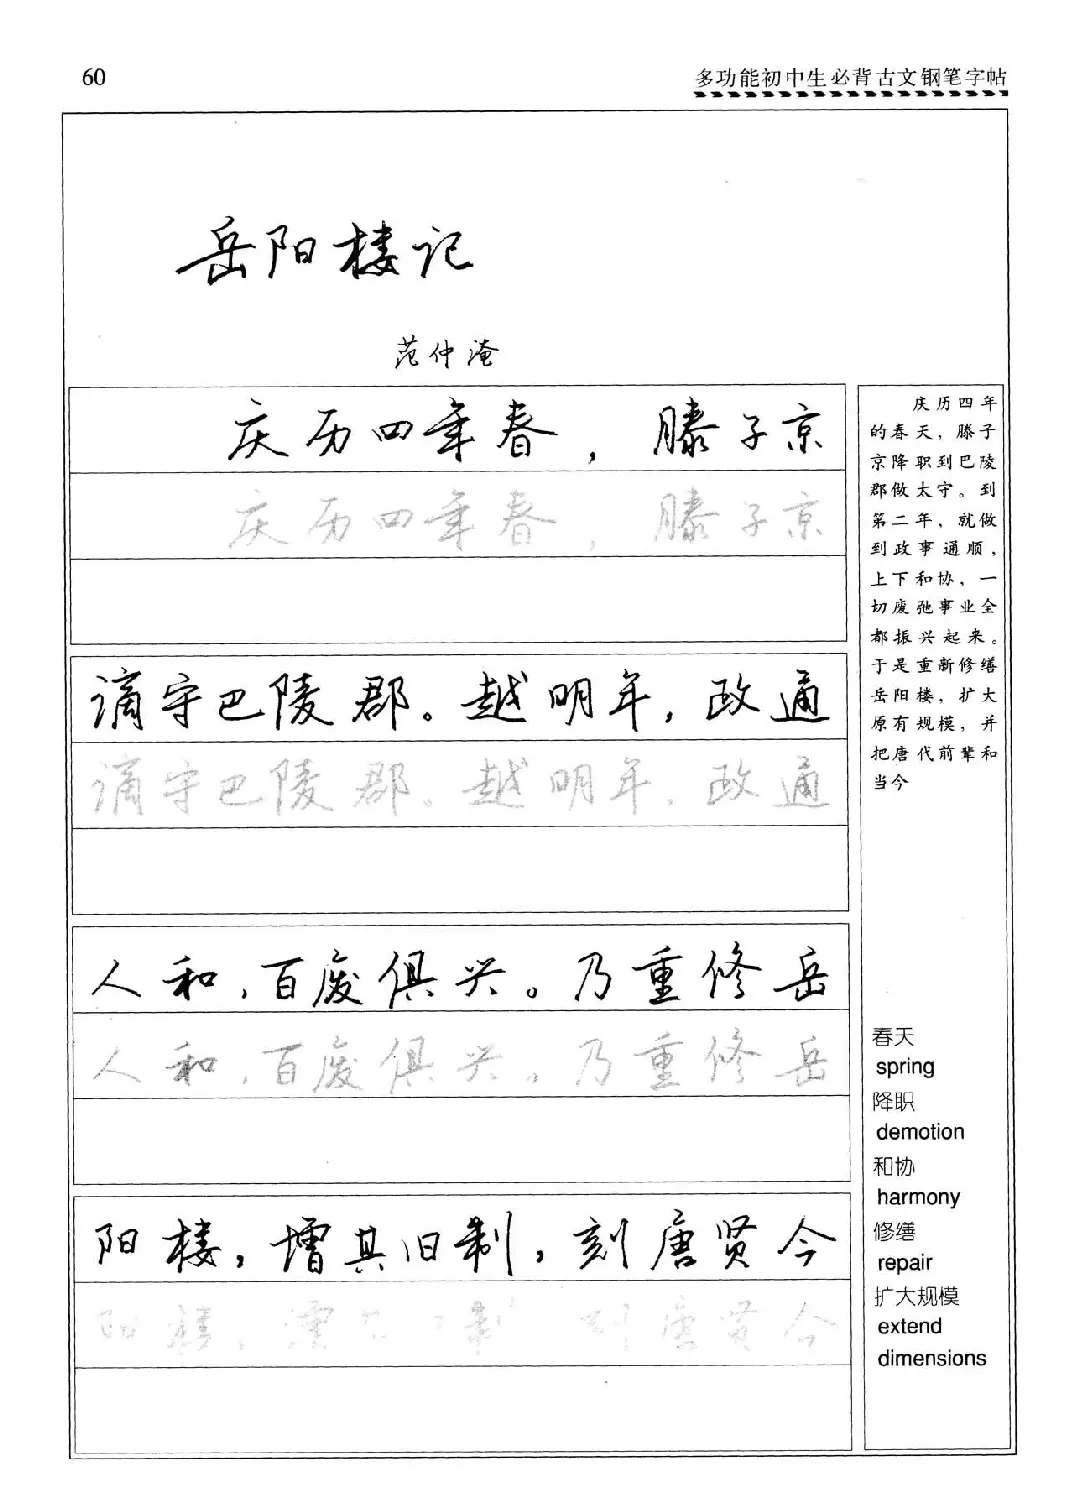 60
多功能初中生必背古文钢笔字帖
岳阳楼记
范仲淹
庆历四年春，滕子京
庆历四年春，滕子京
谪守巴陵郡。越明年，政通
谪守巴陵郡。越明年，政通
人和，百废俱兴。乃重修岳
人和，百废俱兴。乃重修岳
阳楼，增其旧制，刻唐贤今
阳楼，增其旧制 刻唐贤今
庆历四年
的春天，滕子
京降职到巴陵
郡做太守。到
第二年，就做
到政事通顺，
上下和协，一
切废弛事业全
都振兴起来。
于是重新修缮
岳阳楼，扩大
原有规模，并
把唐代前辈和
当今
春天
spring
降职
demotion
和协
harmony
修缮
repair
扩大规模
extend
dimensions